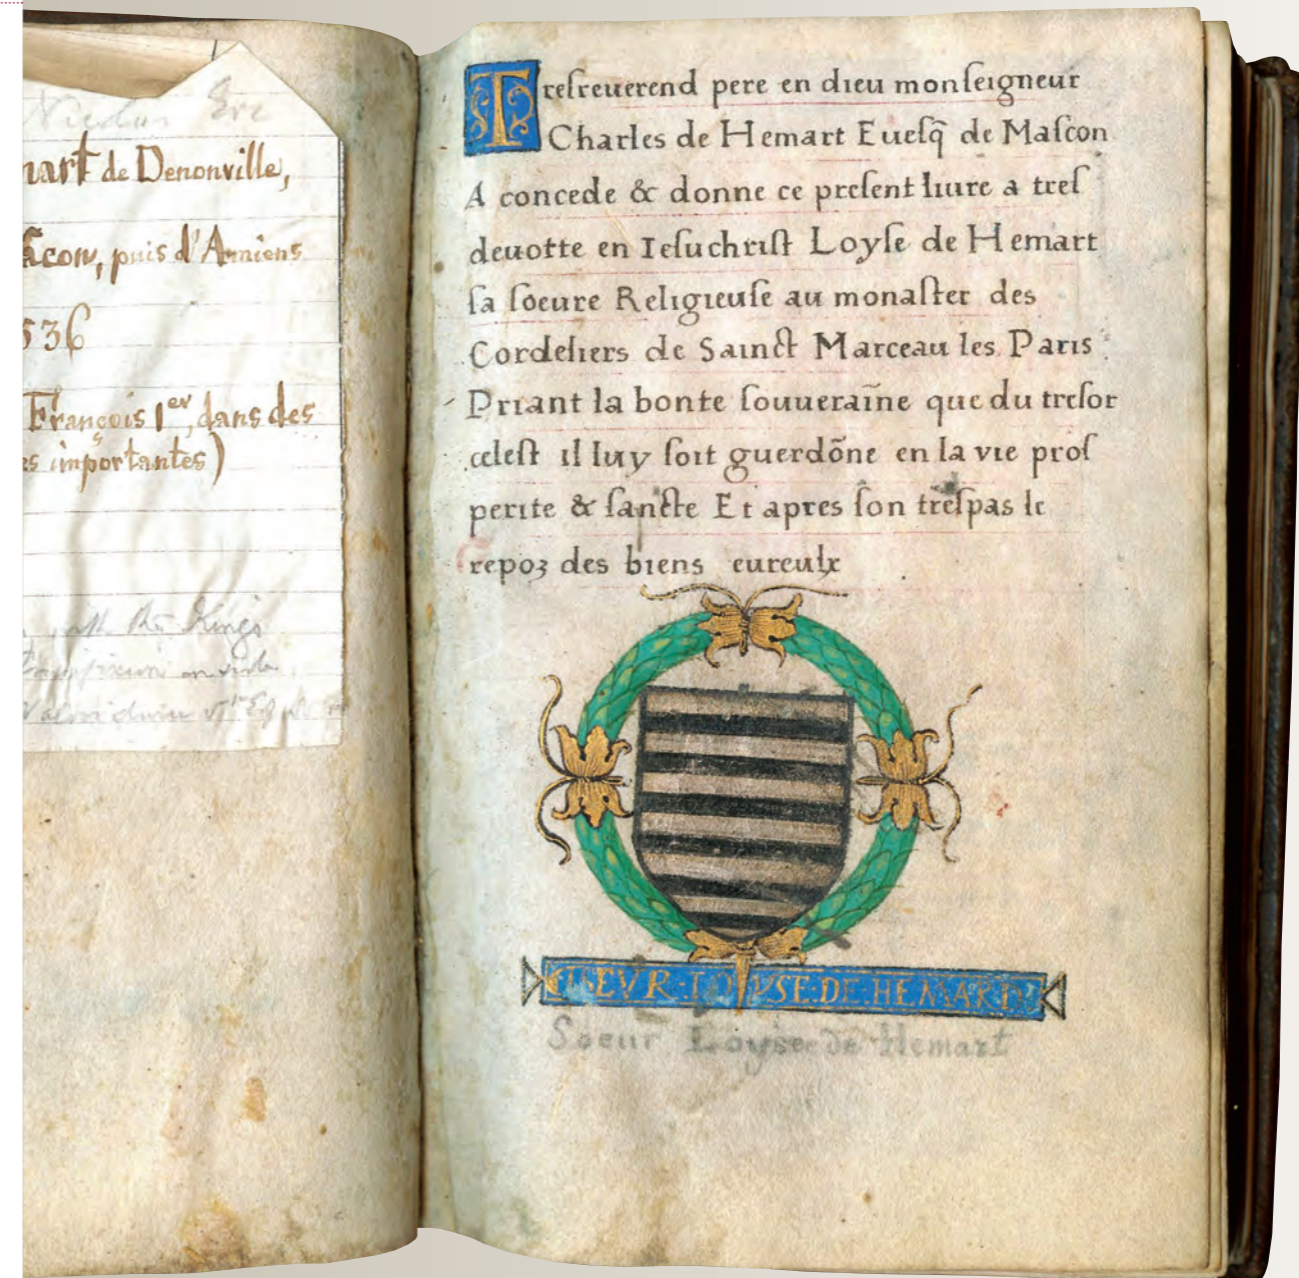 art de Denonville,
acon, puis d'Amiens
536
François 1er, dans des
es importantes)
the Kings
Treſreuerend pere en dieu monſeigneur
Charles de Hemart Eueſq̃ de Maſcon
A concede & donne ce preſent liure a treſ
deuotte en Ieſuchriſt Loyſe de Hemart
ſa ſoeure Religieuſe au monaſter des
Cordeliers de Sainct Marceau les Paris
Priant la bonte ſouueraĩne que du treſor
celeſt il luy ſoit guerdõne en la vie proſ
perite & ſancte Et apres ſon treſpas le
repoz des biens eureulx
SEVR·LOYSE·DE·HEMART
Soeur Loyse de Hemart